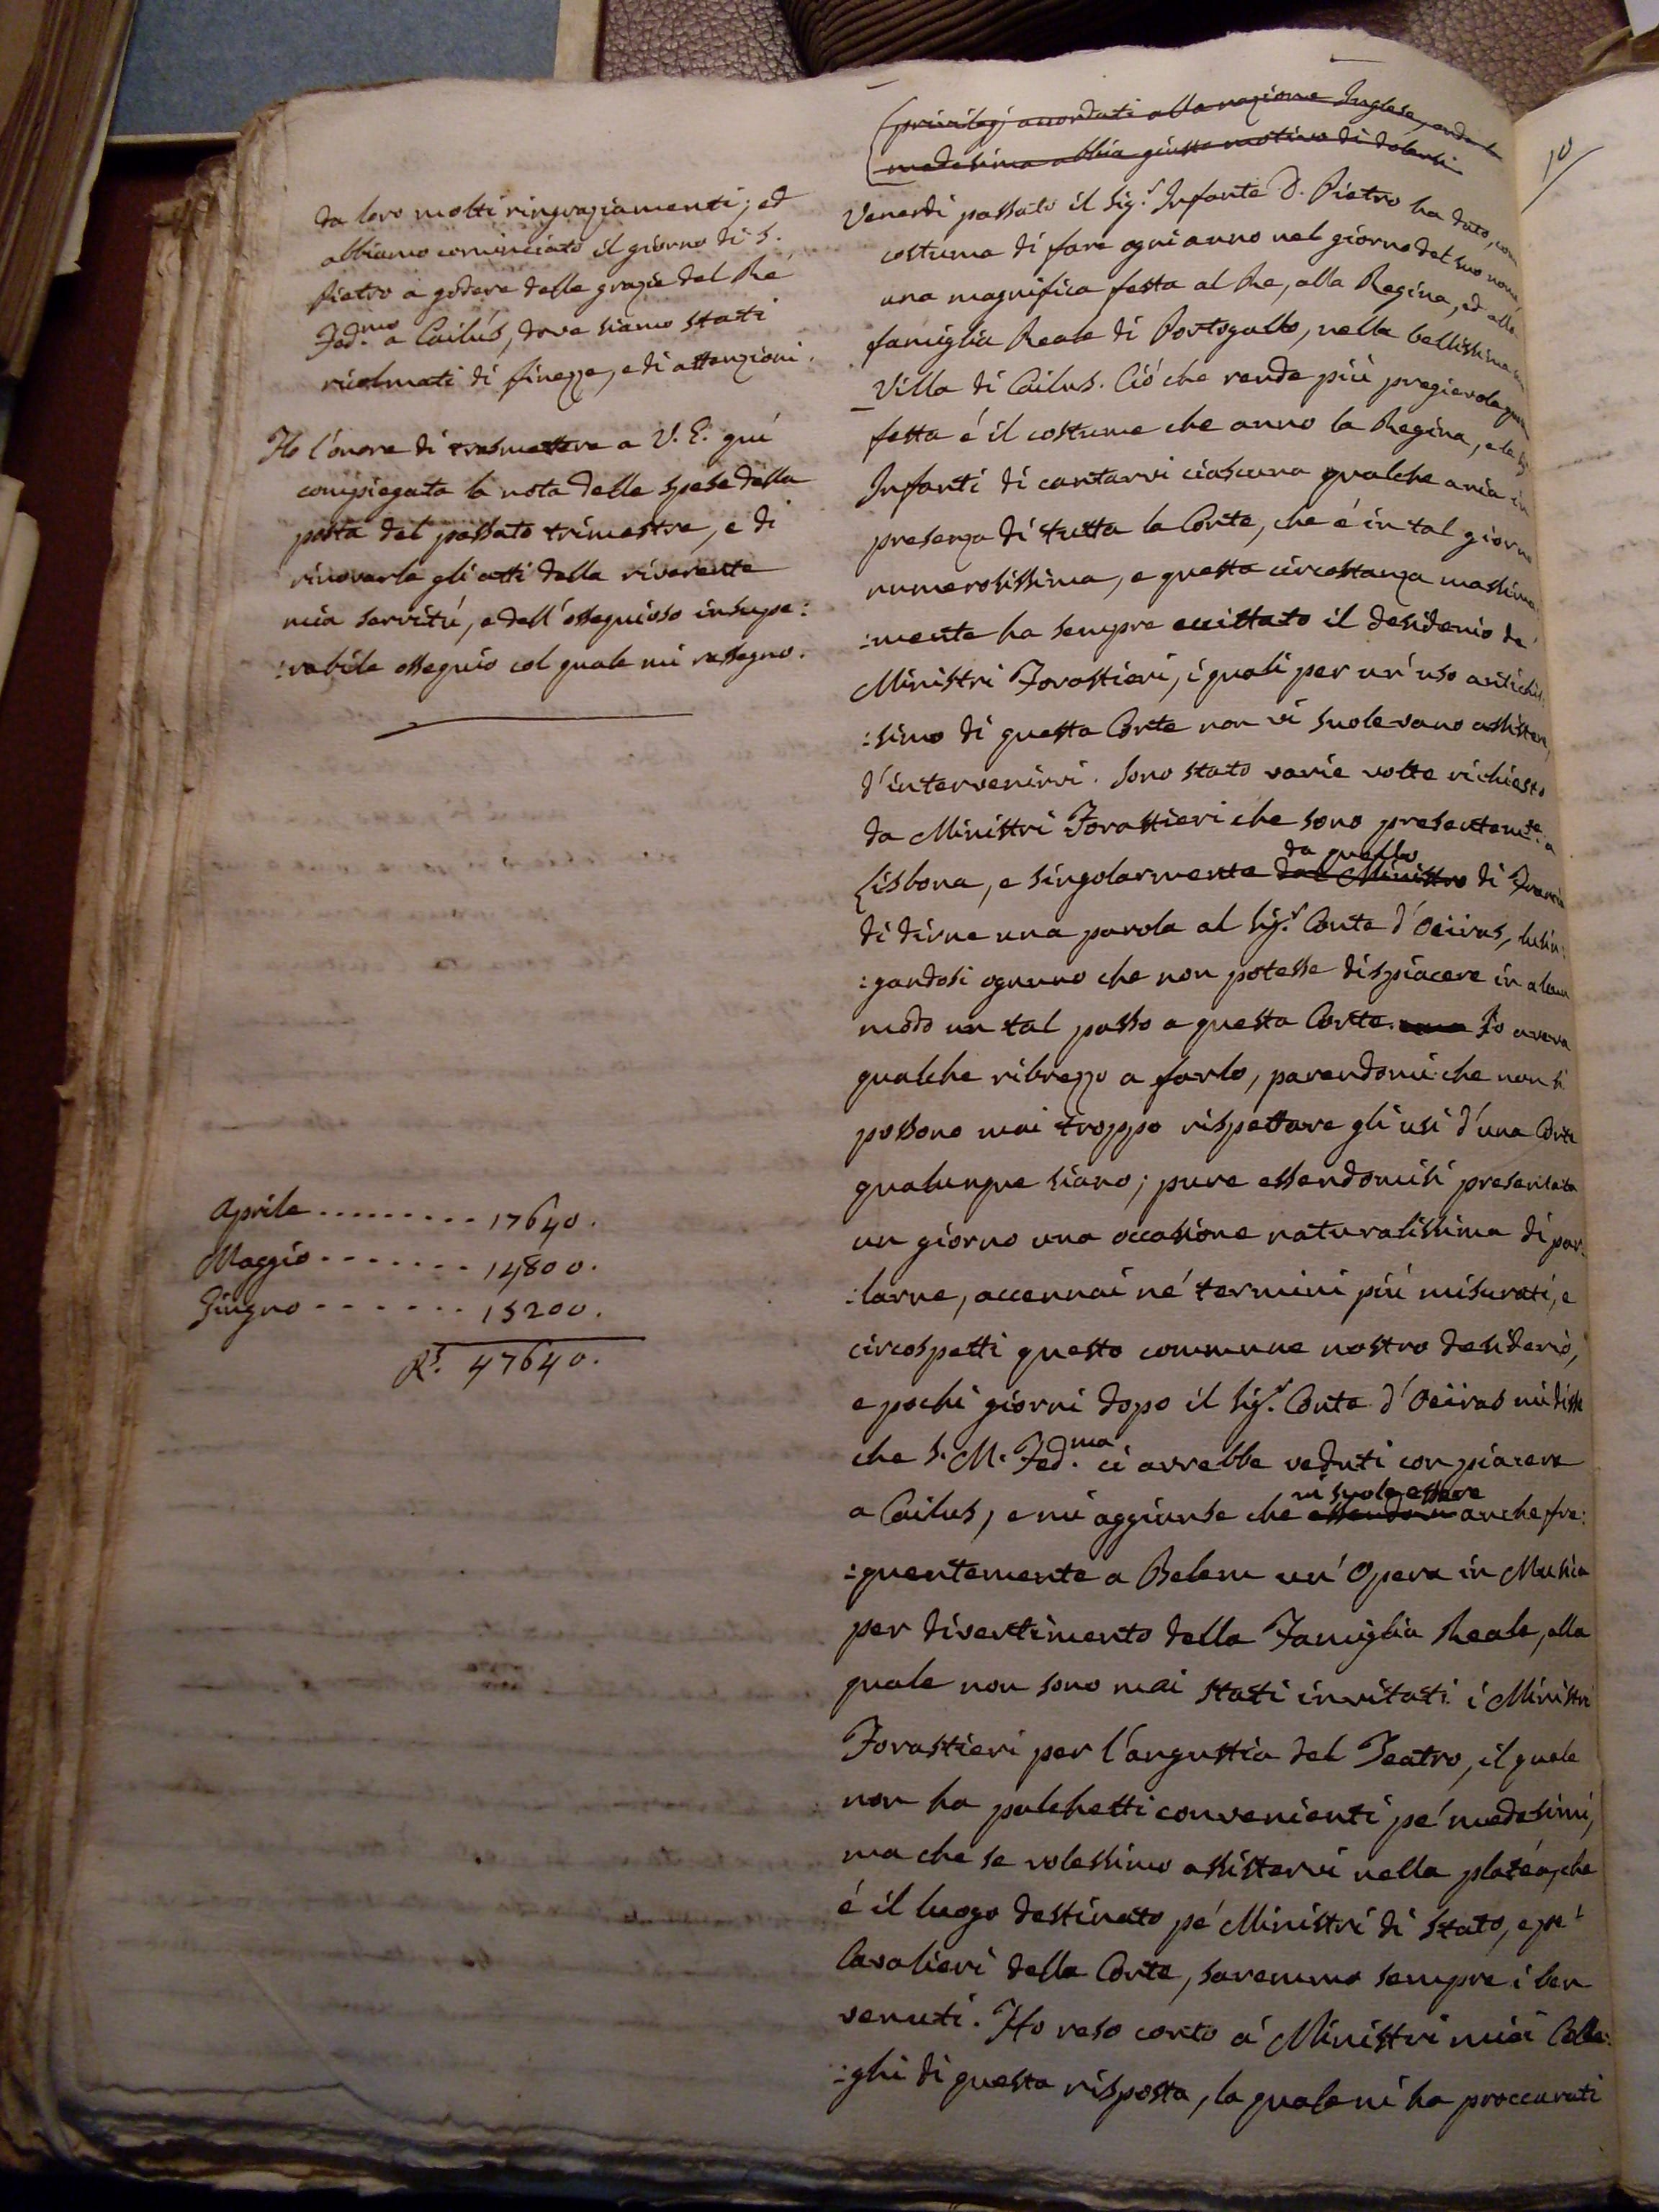 (privilegj accordati alla nazione Inglese, onde la
medesima abbia giusto motivo di dolersi
Venerdi passato il Sig.r Infante D. Pietro ha dato, com
costuma di fare ogni anno nel giorno del suo nome
una magnifica festa al Re, alla Regina, ed alla
famiglia Reale di Portogallo, nella bellissima
Villa di Cailus. Ció che rende più pregievole
festa é il costume che anno la Regina, e le
Infanti di cantarvi ciascuna qualche aria in
presenza di tutta la Corte, che é in tal giorno
numerosissima, e questa circostanza massima:
:mente ha sempre eccittato il desiderio de'
Ministri Forastieri, i quali per un' uso antichis:
:simo di questa Corte non vi solevano assistere,
d'intervenirvi. Sono stato varie volte richiesto
da Ministri Forastieri che sono presentem.te a
Lisbona, e singolarmente dal Ministro da quello di Francia
di dirne una parola al Sig.r Conte d'Oeiras, lusin:
:gandosi ognuno che non potesse dispiacere in alcun
modo un tal passo a questa Corte. Io aveva
qualche ribrezzo a farlo, parendomi che non si
possono mai troppo rispettare gli usi d'una Corte
qualunque siano; pure essendomisi presentata
un giorno una occasione naturalissima di par:
:larne, accennai né termini più misurati, e
circospetti questo commune nostro desiderio,
e pochi giorni dopo il Sig.r Conte d'Oeiras mi disse
che S. M. Fed.ma ci avrebbe veduti con piacere
a Cailus, e mi aggiunse che essendovi vi suole essere anche fre:
:quentemente a Belem un' Opera in Musica
per divertimento della Famiglia Reale, alla
quale non sono mai stati invitati i Ministri
Forastieri per l'angustia del Teatro, il quale
non ha palchetti convenienti pe' medesimi,
ma che se volessimo assistervi nella platéa, che
é il luogo destinato pe' Ministri di Stato, e pe'
Cavalieri della Corte, saremmo sempre i ben
venuti. Ho reso conto a' Ministri miei Colle:
:ghi di questa risposta, la quale mi ha proccurati
da loro molti ringraziamenti; ed
abbiamo cominciato il giorno di S.
Pietro a godere delle grazie del Re
Fed.mo a Cailús, dove siamo stati
ricolmati di finezze, e di attenzioni.
Ho l'onore di trasmettere a V. E. qui
compiegata la nota delle spese della
posta del passato trimestre, e di
rinovarle gli atti della riverente
mia servitú, e dell'ossequioso insupe:
:rabile ossequio col quale mi rassegno.
Aprile ......... 17640.
Maggio ....... 14800.
Giugno ....... 15200.
R.s 47640.